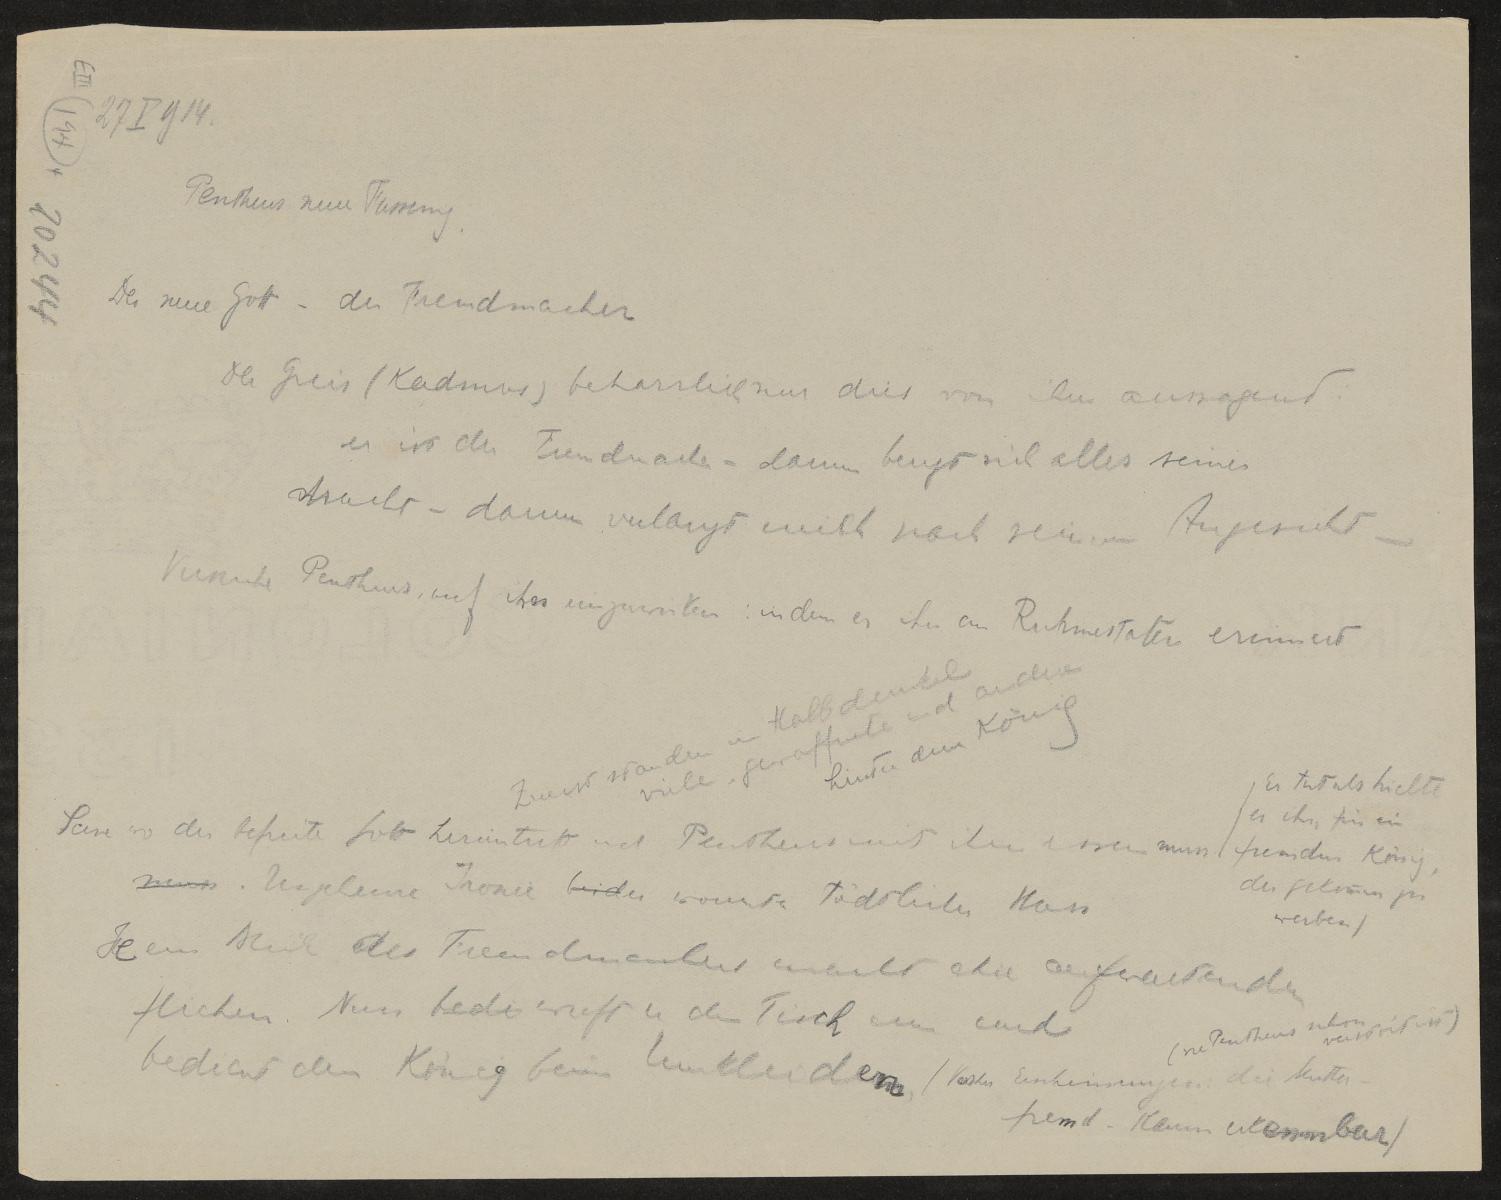 E III
194
20244
27 I 914.
Pentheus neue Fassung.
Der neue Gott – der Fremdmacher
Der Greis (Kadmos) beharrlich nur dies von ihm aussagend:
er ist der Fremdmacher – darum beugt sich alles seiner
Macht – darum verlangt mich nach seinem Angesicht –
Versuche Pentheus, auf ihn einzuwirken: indem er ihn an Ruhmestaten erinnert
Zuerst standen im Halbdunkel
viele gewaffnete und andere
hinter dem König
Scene wo der befreite Gott hereintritt und Pentheus mit ihm essen muss
muss. Ungeheure Ironie beider worunter tödtlicher Hass
(Er tut als hielte
er ihn für einen
fremden König,
der gekommen zu
werben)
ein Blick des Fremdmachers macht die aufwartenden
fliehen. Nun wirft er den Tisch um und
bedient den König beim Umkleiden.
(wie Pentheus schon verstört ist)
(Erscheinungen: die Mutter –
fremd – kaum erkennbar)